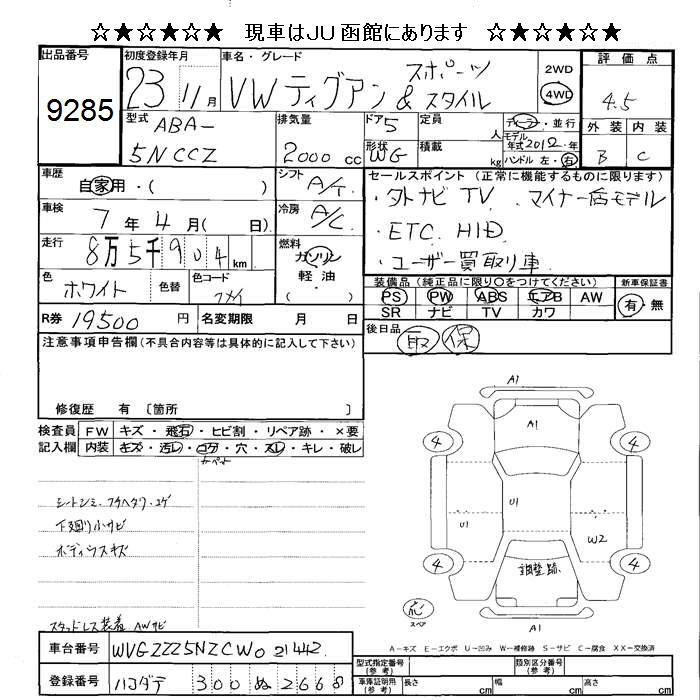 ☆★☆★☆★ 現車はJU函館にあります ☆★☆★☆★
出品番号
9285
初度登録年月
23 11月
車名・グレード
VW ティグアン スポーツ & スタイル
2WD
4WD
評価点
4.5
外装 内装
B C
型式
ABA-
5NCCZ
排気量
2000 cc
ドア 5
形状 WG
定員 人
積載 kg
ディーラー・並行
モデル年式 2012年
ハンドル 左・右
車歴
自家用・( )
シフト
A/T
車検
7年 4月( 日)
冷房
A/C
走行
8万5千904km
燃料
ガソリン
軽油
( )
色
ホワイト
色替
色コード
R券 19500円
名変期限 月 日
セールスポイント(正常に機能するものに限ります)
・外ナビ TV、マイナー后モデル
・ETC HID
・ユーザー買取り車
装備品(純正品に限り○をつけてください)
PS PW ABS エアB AW
SR ナビ TV カワ
新車保証書
有・無
後日品
取 保
注意事項申告欄(不具合内容等は具体的に記入して下さい)
修復歴 有 〔箇所
検査員記入欄
FW キズ・飛石・ヒビ割・リペア跡・×要
内装 キズ・汚レ・コゲ・穴・スレ・キレ・破レ
シートシミ・フチヘタリ・コゲ
下廻り小サビ
ボディウスキズ
スタッドレス装着 AWサビ
A1
A1
4
4
U1
U1
W2
4
4
調整跡
A1
応
スペア
A-キズ E-エクボ U-凹み W-補修跡 S-サビ C-腐食 XX-交換済
車台番号 WVGZZZ5NZCW021442
登録番号 ハコダテ 300 ぬ 2668
型式指定番号(参考)
類別区分番号(参考)
車庫証明用(参考) 長さ cm 幅 cm 高さ cm